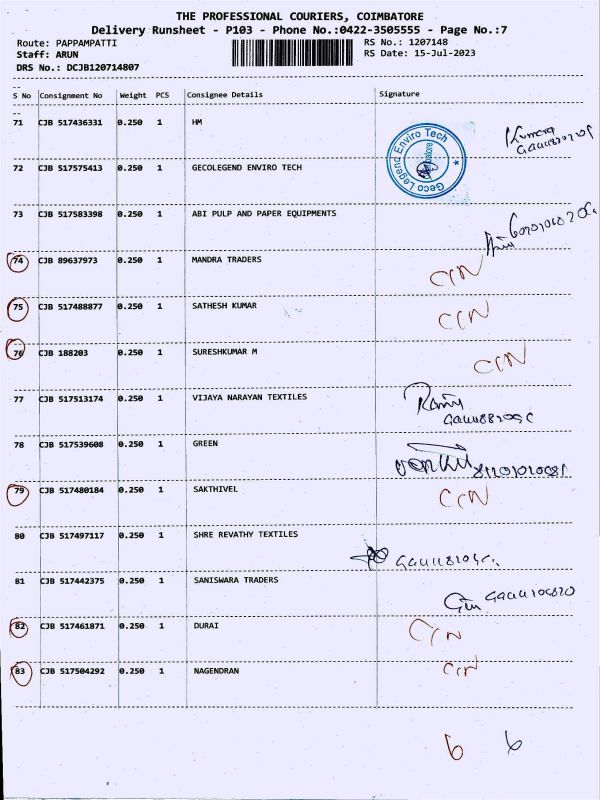 THE PROFESSIONAL COURIERS, COIMBATORE
Delivery Runsheet - P103 - Phone No.:0422-3505555 - Page No.:7
Route: PAPPAMPATTI
RS No.: 1207148
Staff: ARUN
RS Date: 15-Jul-2023
DRS No.: DCJB120714807
S No Consignment No Weight PCS Consignee Details Signature
71 CJB 517436331 0.250 1 HM
Geco Legend Enviro Tech
72 CJB 517575413 0.250 1 GECOLEGEND ENVIRO TECH
73 CJB 517583398 0.250 1 ABI PULP AND PAPER EQUIPMENTS
74 CJB 89637973 0.250 1 MANDRA TRADERS CIN
75 CJB 517488877 0.250 1 SATHESH KUMAR CIN
76 CJB 188203 0.250 1 SURESHKUMAR M CIN
77 CJB 517513174 0.250 1 VIJAYA NARAYAN TEXTILES
78 CJB 517539608 0.250 1 GREEN
79 CJB 517480184 0.250 1 SAKTHIVEL CIN
80 CJB 517497117 0.250 1 SHRE REVATHY TEXTILES
81 CJB 517442375 0.250 1 SANISWARA TRADERS
82 CJB 517461871 0.250 1 DURAI CIN
83 CJB 517504292 0.250 1 NAGENDRAN CIN
6 6